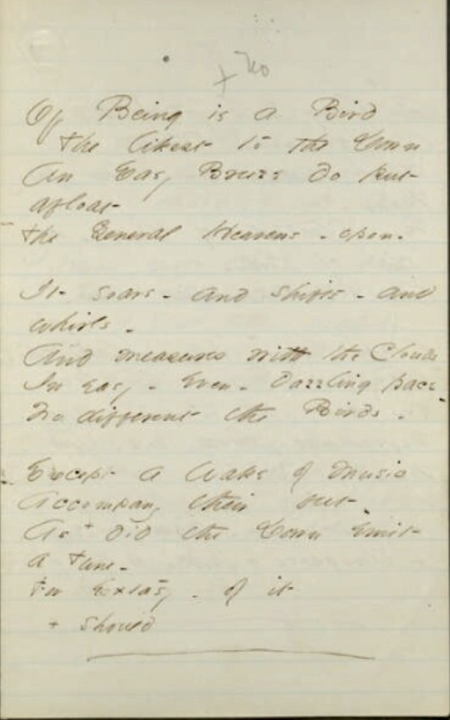 Of Being is a Bird
The likest to the Down
An Easy Breeze do put
afloat
The General Heavens - upon -
It soars - and shifts - and
whirls -
And measures with the Clouds
In easy - even - dazzling pace
No different the Birds -
Except a Wake of Music
Accompany their feet -
As + did the Down emit
a Tune -
For Extasy - of it
+ should